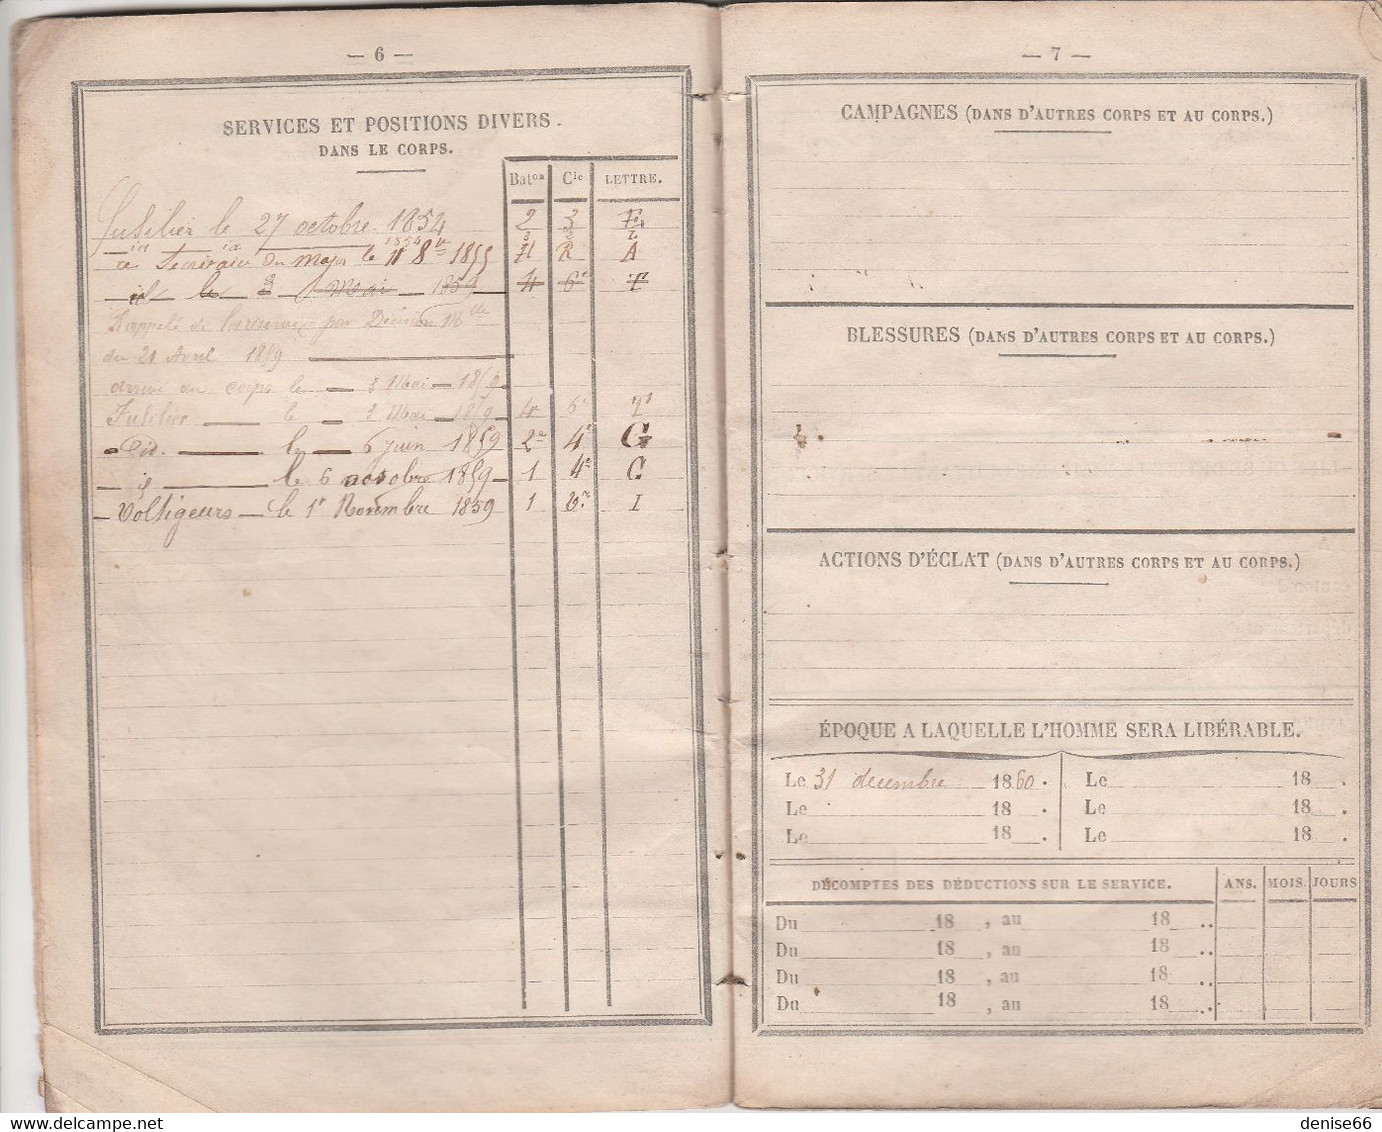 — 6 —
SERVICES ET POSITIONS DIVERS.
DANS LE CORPS.
Bat.on Cie LETTRE.
Fusilier le 27 octobre 1854 2 3 F
id id 1854 3 2 L
Secrétaire du major le 8bre 1855 H R A
id le 3 Mai 1859 4 6e T
Rappelé de la réserve par Décision Mlle
du 21 Avril 1859
arrivé au corps le 3 Mai 1859
Fusilier le 3 Mai 1859 4e 6e T
Did. le 6 juin 1859 2e 4e G
le 6 octobre 1859 1 4e G
Voltigeurs le 1r Novembre 1859 1 I
— 7 —
CAMPAGNES (DANS D'AUTRES CORPS ET AU CORPS.)
BLESSURES (DANS D'AUTRES CORPS ET AU CORPS.)
ACTIONS D'ÉCLAT (DANS D'AUTRES CORPS ET AU CORPS.)
ÉPOQUE A LAQUELLE L'HOMME SERA LIBÉRABLE.
Le 31 decembre 1860. Le 18 .
Le 18 . Le 18 .
Le 18 . Le 18 .
DÉCOMPTES DES DÉDUCTIONS SUR LE SERVICE. ANS. MOIS. JOURS
Du 18 , au 18 ..
Du 18 , au 18 ..
Du 18 , au 18 ..
Du 18 , au 18 ..
denise66